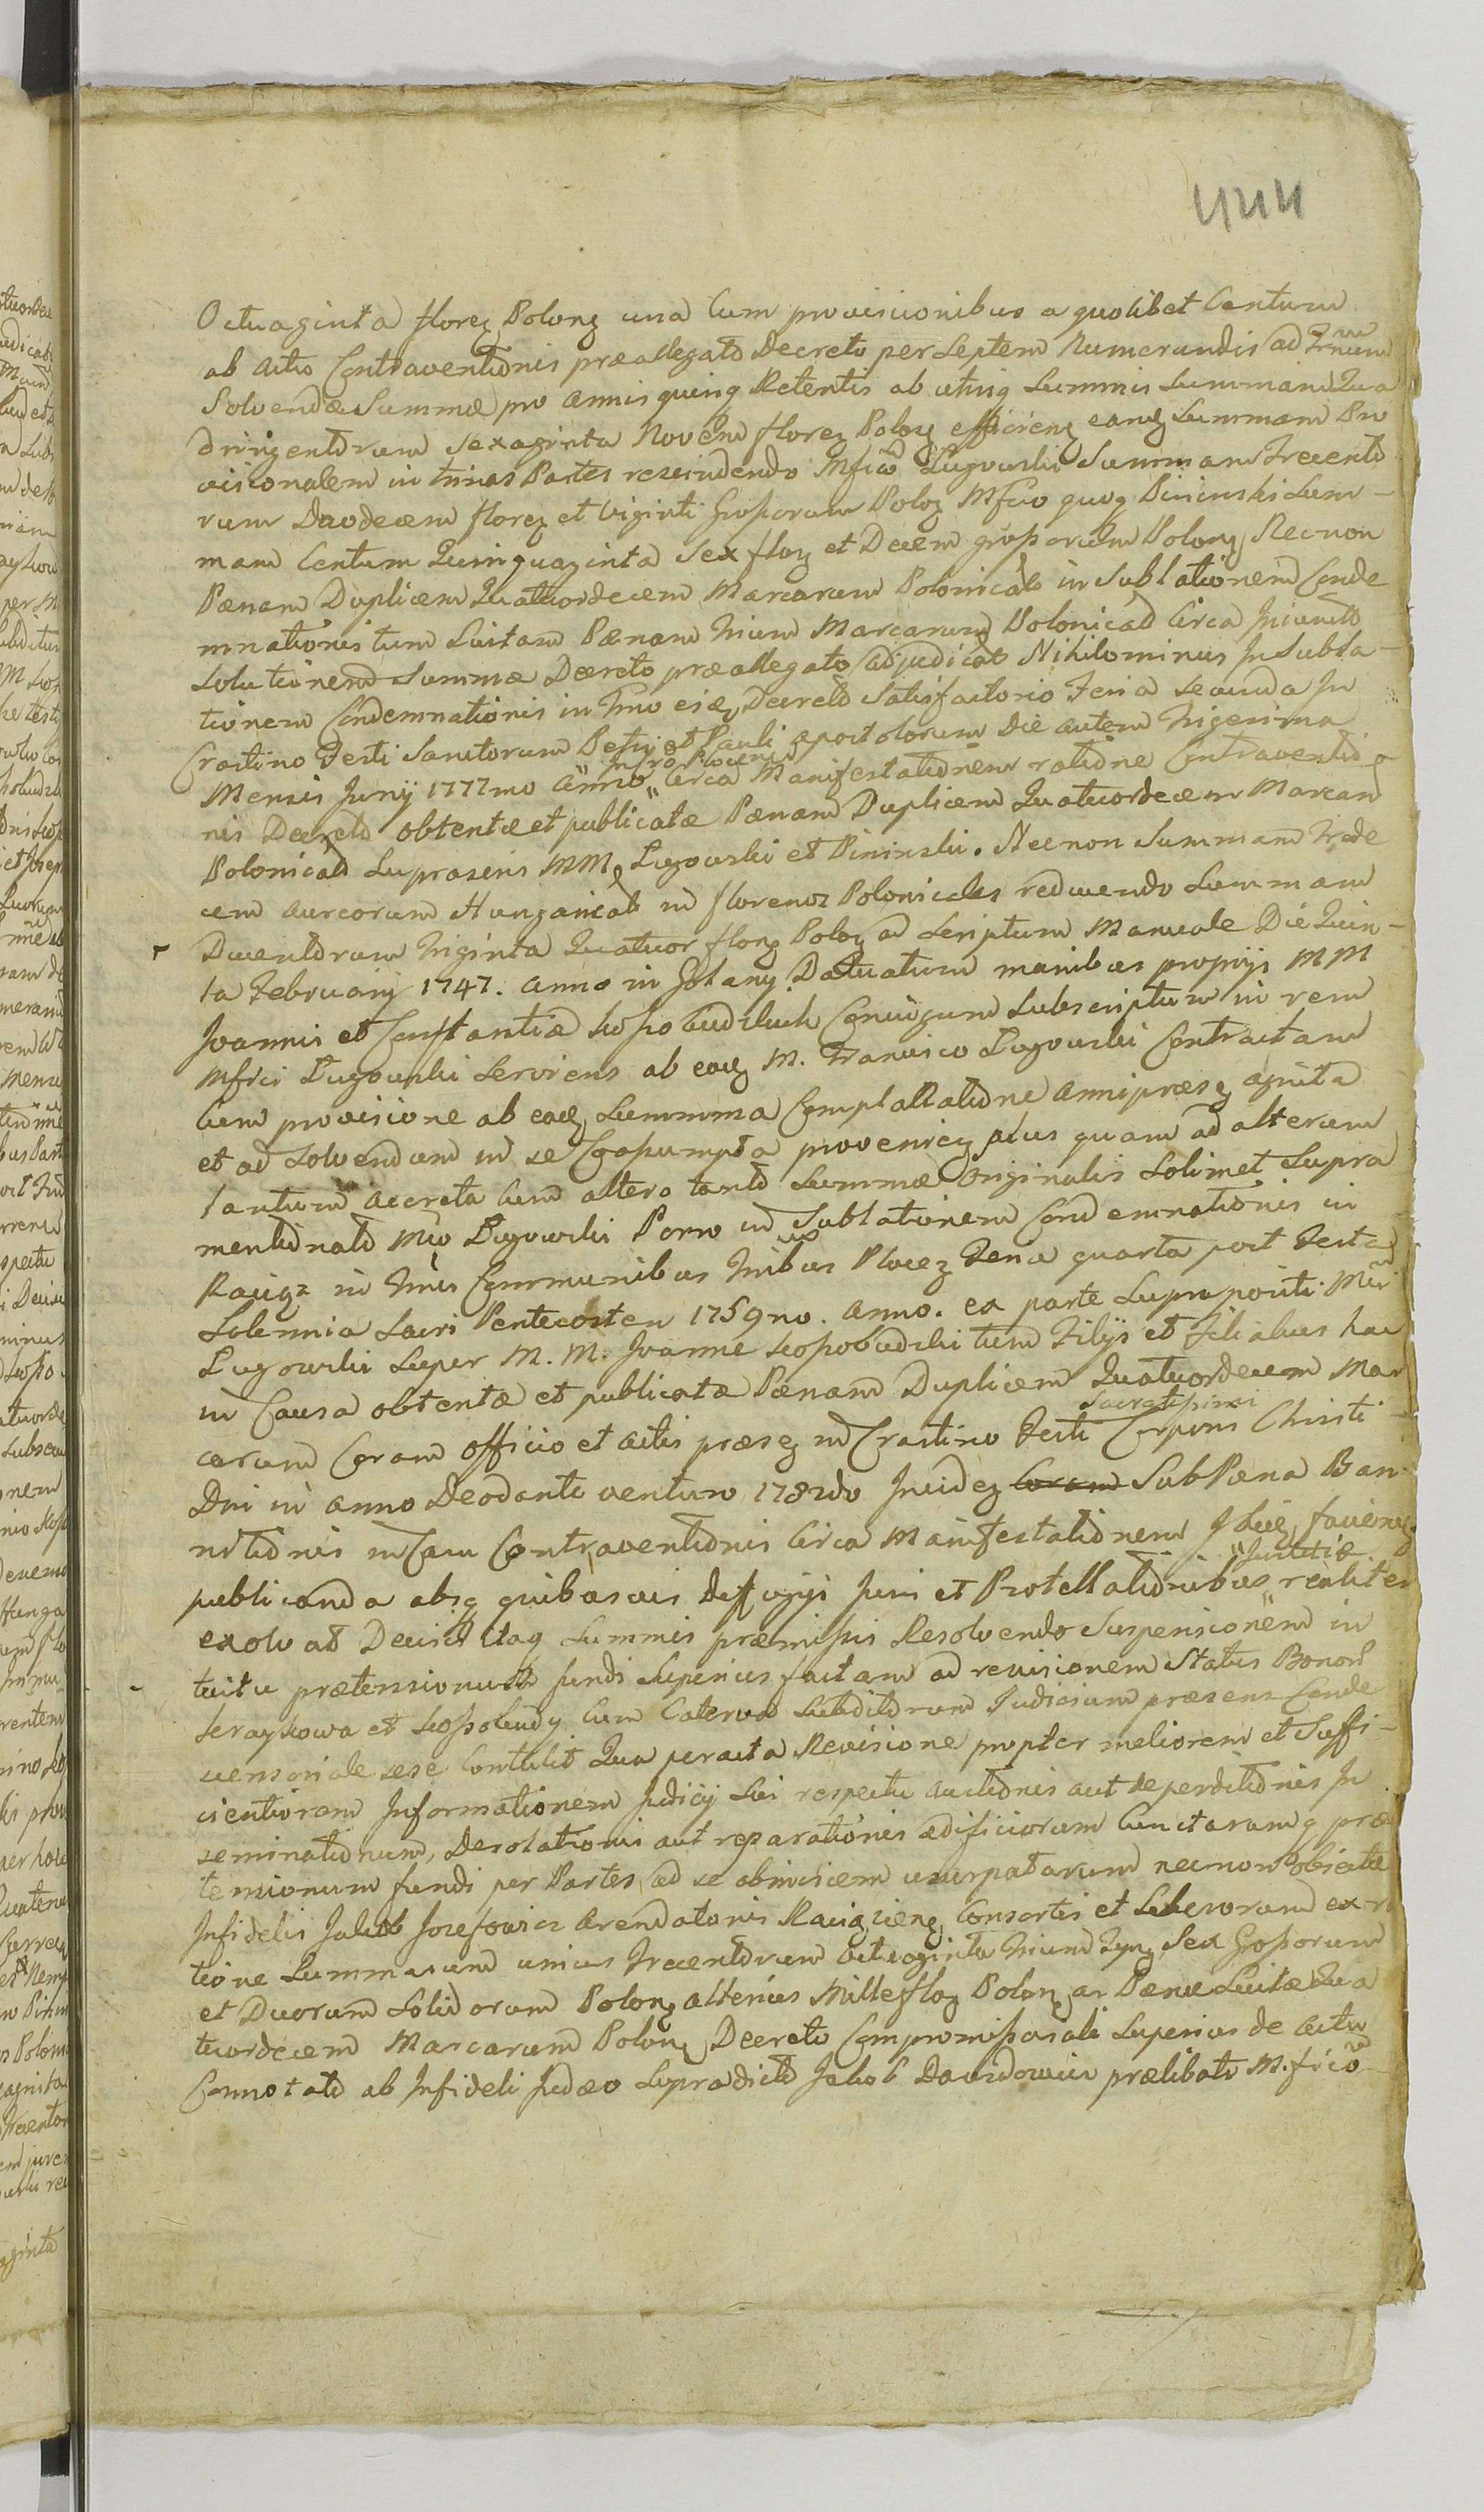 444
Octuaginta florez Polonz una Cum provisionibus a quolibet Centum
ab actu Contraventionis præallegato Decreto per Septem Numerandis ad Trnum
Solvendæ Summæ pro annis quinq Retentis ab utriq Summis Summam Qua
dringentorum Sexaginta Novem florez Polonz efficienz eandz Summam Pro
visionalem in trinas Partes rescindendo Mfico Lugowski Summam Trecento
rum Duodecem florez et Viginti Grossorum Poloz Mfico quoq Pininski Sum-
mam Centum Quinquaginta Sex floz et Decem grossorum Polonz Necnon
Pænam Duplicem Quatuordecem Marcarum Polonical in Sublationem Conde
mnationis tum Luitam Pænam trium Marcarum Polonical Circa
Solutionem Summæ Decreto præallegato adjudicat Nihilominus In Subla-
tionem Condemnationis in Trno ejdz Decreto Satisfactorio Feria secunda In
Crastino Festi Sanctorum Petri et Pauli apostolorum Die autem Trigesima
Mensis Junij 1777mo Anno Circa Manifestationem ratione Contraventio
nis Decreto obtentæ et publicatæ Pænam Duplicem Quatuordecem Marcar
Polonical Supraseris MM. Lugowski et Pininski. Necnon Summam Trede
cem aureorum Hungarical in florenos Polonicales reducendo Summam
Ducentorum Triginta Quatuor florz Poloz ad Scriptum Manuale Die Quin-
ta Februarij 1747. anno in Datuatum manibus proprijs MM
Joannis et Constantiæ Conjugum Subscriptum in rem
Mfici Lugowski Serviens ab eodz M. Francisco Lugowski Contractam
Cum provisione ab eadz Summma annipræsz agnita
et ad Solvendum in se Assumpta provenienz plus quam ad alterum
tantum accreta Cum altero tanto Summæ Originalis Solimet Supra
mentionato Mco Lugowski Porro in Sublationem Condemnationis in
Raciąz in Trnis Communibus Tribus Plocez Feria quarta post Festa
Solennia Sacri Pentecosten 1759no. Anno. ex parte Suprapositi Mci
Lugowski Super M. M. Joanne tum Filijs et Filiabus hac
in Causa obtentæ et publicatæ Pænam Duplicem Quatuordecem Mar
carum Coram Officio et Actis præsz in Crastino Festi Sacratissimi Corporis Christi
Dni in anno Deodante venturo 1782do Incidez Coram Sub Pæna Ban-
nitionis in Casu Contraventionis Circa Manifestationem faciend
publicanda absq quibusvis diffugijs Juri et Protestationibus Justitiæ realiter
exolv at Itaq Summis præmissis Resolvendo Suspensionem in
tuitu prætensionum fundi Superius factam ad revisionem Status Bonorum
et Cum Caterva Subditorum Judicium præsens Conde
scensoriale sese Contulit Qua peracta Revisione propter meliorem et Suffi-
cientiorem Informationem Judicij Sui respectu auctionis aut deperditionis In
seminationum, Desolationis aut reparationis ædificiorum Cunctarumq præ
tensionum fundi per Partes ad se abinvicem usurpatarum necnon Objectu
Infidelis Jakub Jozefowicz Arendatoris Raciązienz Consortis et Liberorum ex ra
tione Summarum unius Trecentorum Octoginta trium Sex Grossorum
et Duorum Solidorum Polonz alterius Mille floz Polonz ac Pænæ Luitæ Qua
tuordecem Marcarum Polonz Decreto Compromissoriali Superius de actu
Connotato ab Infideli Judæo Supradicto Jakob Davidowicz prælibato M.fico